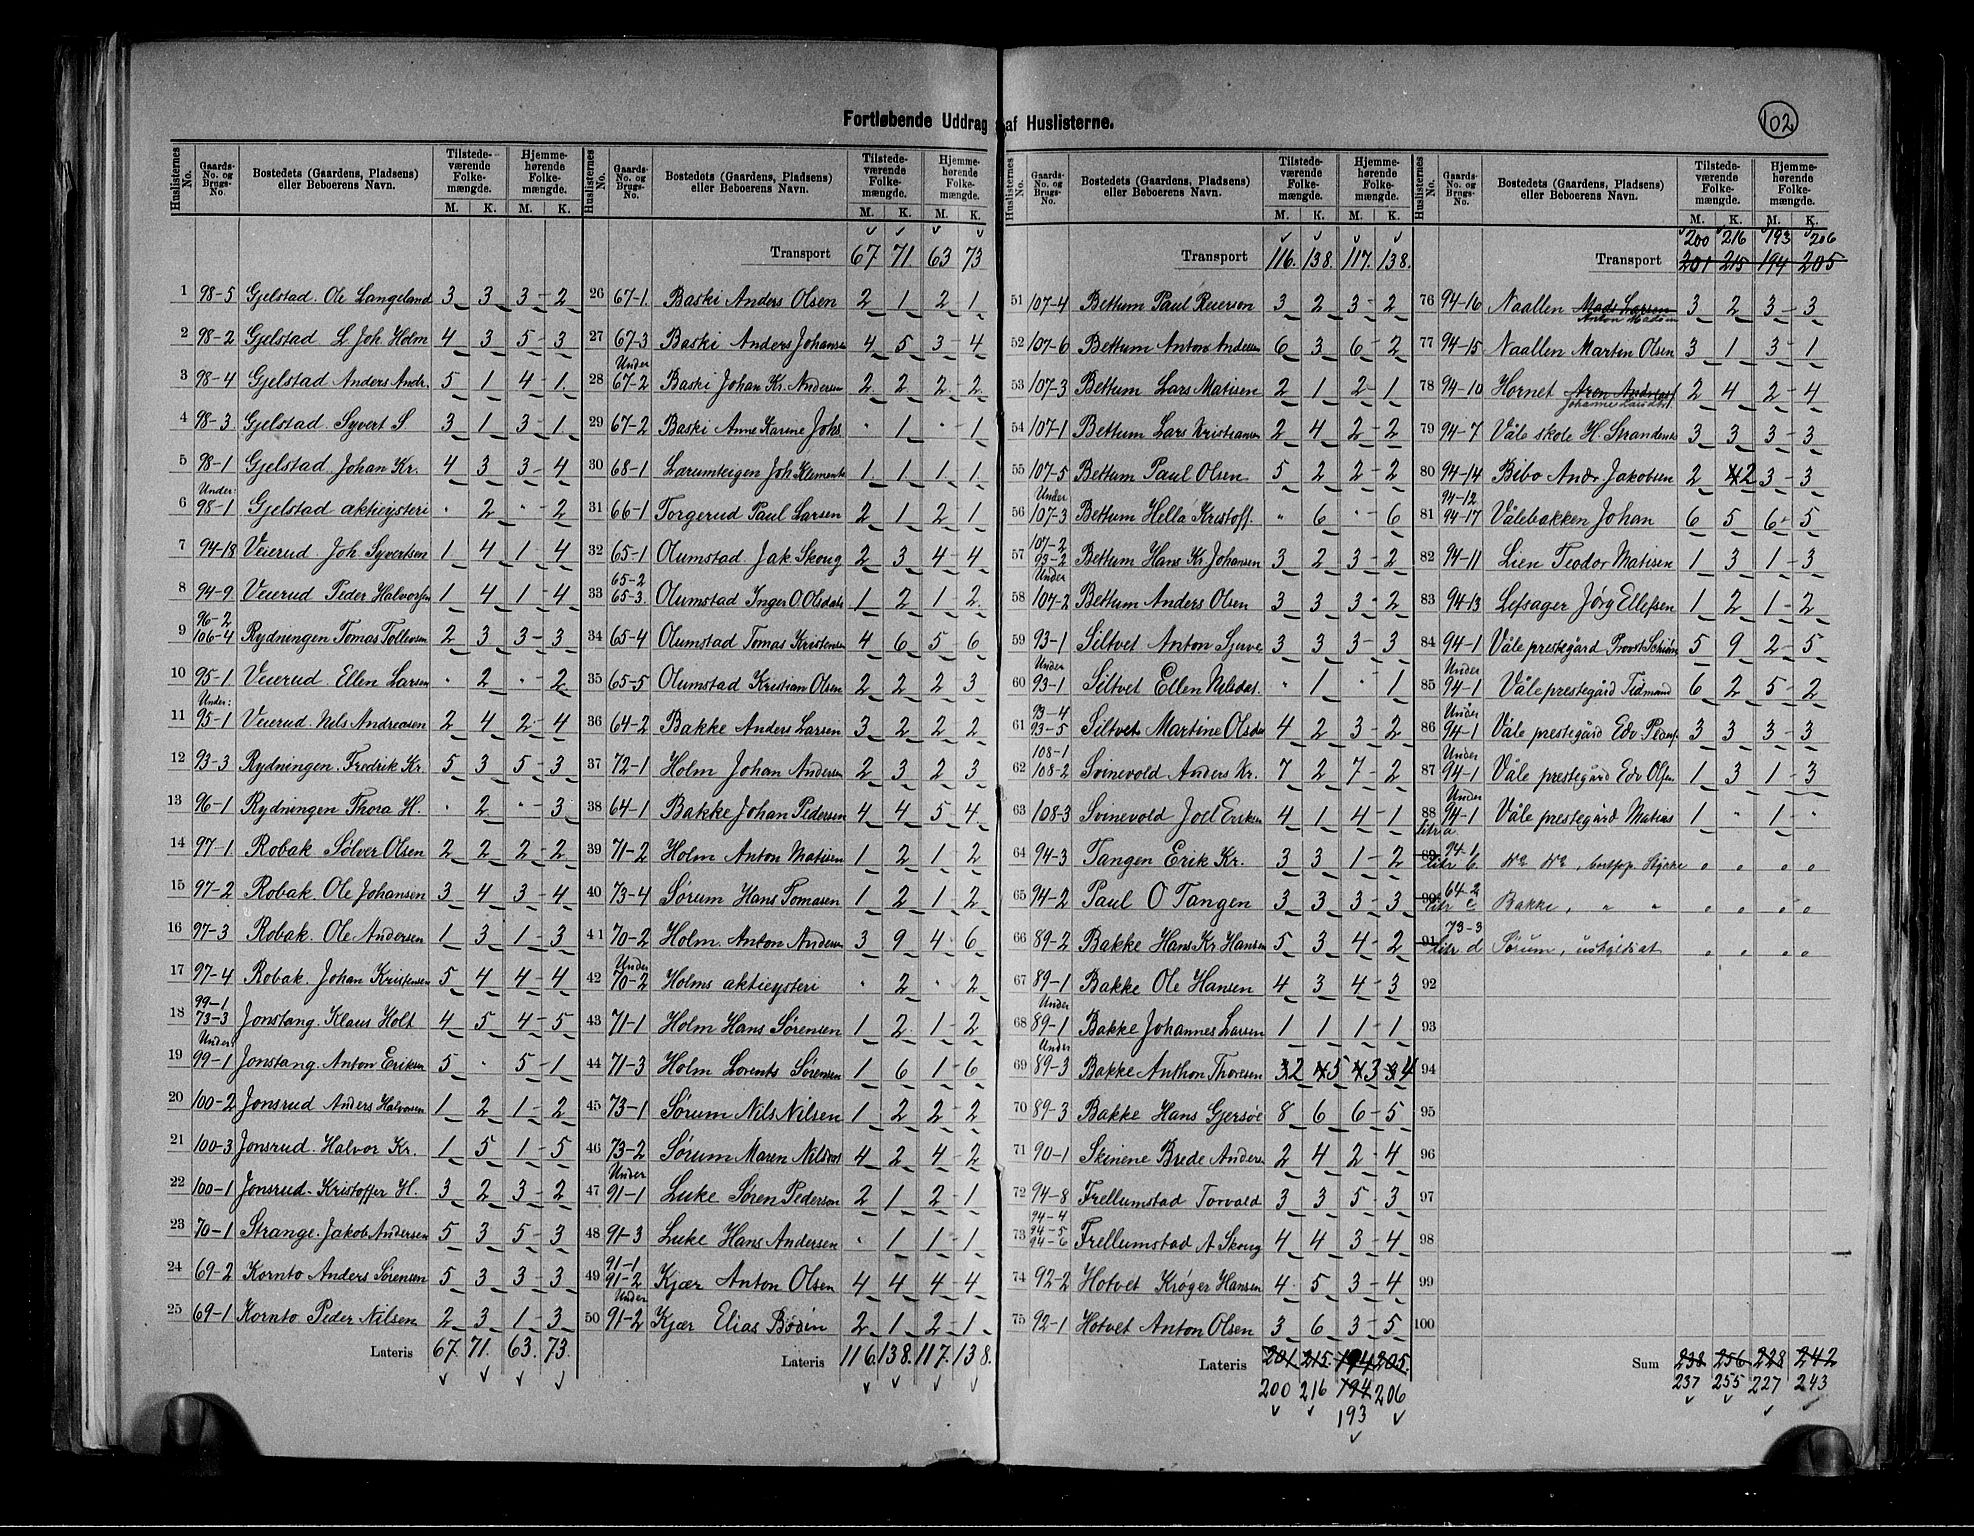 Fortløbende Uddrag af Huslisterne.
102
Huslisternes No. Gaards-No. og Brugs-No. Bostedets (Gaardens, Pladsens) eller Beboerens Navn. Tilstedeværende Folkemængde. Hjemmehørende Folkemængde.
M. K. M. K.
1 98-5 Gjelstad. Ole Langeland 3 3 3-2
2 98-2 Gjelstad L Joh. Holm 4 3 5-3
3 98-4 Gjelstad Anders Andr. 5 1 4-1
4 98-3 Gjelstad. Syvert S 3 1 3-1
5 98-1 Gjelstad. Johan Kr. 4 3 3-4
6 Under: 98-1 Gjelstad aktieysteri " 2 "-2
7 94-18 Veierud Joh. Syvertsen 1 4 1-4
8 94-9 Veierud Peder Halvorsen 1 4 1-4
9 96-2 106-4 Rydningen Tomas Tollevsen 2 3 3-3
10 95-1 Veierud. Ellen Larsen " 2 "-2
11 Under: 95-1 Veierud. Nils Andreasen 2 4 2-4
12 93-3 Rydningen. Fredrik Kr. 5 3 5-3
13 96-1 Rydningen Thora H. " 2 "-3
14 97-1 Robak Sølver Olsen 2 2 2-2
15 97-2 Robak. Ole Johansen 3 4 3-4
16 97-3 Robak. Ole Andersen 1 3 1-3
17 97-4 Robak. Johan Kristensen 5 4 4-4
18 99-1 73-3 Jonstang. Klaus Holt 4 5 4-5
19 Under: 99-1 Jonstang. Anton Eriksen 5 " 5-1
20 100-2 Jonsrud Anders Halvorsen 1 2 1-2
21 100-3 Jonsrud. Halvor Kr. 1 5 1-5
22 100-1 Jonsrud. Kristoffer H. 3 2 3-2
23 70-1 Strange. Jakob Andersen 5 3 5-3
24 69-2 Kornto Anders Sørensen 5 3 3-3
25 69-1 Kornto Peder Nilsen 2 3 1-3
Lateris 67. 71. 63. 73.
Huslisternes No. Gaards-No. og Brugs-No. Bostedets (Gaardens, Pladsens) eller Beboerens Navn. Tilstedeværende Folkemængde. Hjemmehørende Folkemængde.
M. K. M. K.
Transport 67 71 63 73
26 67-1. Baski Anders Olsen 2 1 2 1
27 67-3 Baski Anders Johansen 4 5 3-4
28 Under 67-2 Baski Johan Kr. Andersen 2 2 2-2
29 67-2 Baski Anne Karine Johs " 1 "-1
30 68-1 Lærumteigen Joh. Klements 1 1 1 1
31 66-1 Torgerud Paul Larsen 2 1 2 1
32 65-1 Olumstad Jak Skoug 2 3 4-4
33 65-2 65-3. Olumstad Inger O. Olsdat. 1 2 1 2
34 65-4 Olumstad Tomas Kristensen 4 6 5 6
35 65-5 Olumstad Kristian Olsen 2 2 2 3
36 64-2 Bakke Anders Larsen 3 2 2 2
37 72-1 Holm Johan Andersen 2 3 2 3
38 64-1 Bakke Johan Pedersen 4 4 5 4
39 71-2 Holm Anton Matisen 1 2 1-2
40 73-4 Sørum Hans Tomasen 1 2 1 2
41 70-2 Holm. Anton Andersen 3 9 4-6
42 Under 70-2 Holms aktieysteri " 2 " 2
43 71-1 Holm Hans Sørensen 1 2 1-2
44 71-3 Holm Lorents Sørensen 1 6 1-6
45 73-1 Sørum Nils Nilsen 1 2 2-2
46 73-2 Sørum Maren Nilsdat 4 2 4-2
47 Under 91-1 Luke Søren Pederson 2 1 2-1
48 91-3 Luke Hans Andersen " 1 1-1
49 91-1 91-2 Kjær Anton Olsen 4 4 4-4
50 Under 91-2 Kjær Elias Bodin 2 1 2-1
Lateris 116. 138. 117. 138.
Huslisternes No. Gaards-No. og Brugs-No. Bostedets (Gaardens, Pladsens) eller Beboerens Navn. Tilstedeværende Folkemængde. Hjemmehørende Folkemængde.
M. K. M. K.
Transport 116. 138. 117. 138.
51 107-4 Bettum Paul Reierson 3 2 3-2
52 107-6 Bettum Anton Andersen 6 3 6-2
53 107-3 Bettum Lars Matisen 2 1 2-1
54 107-1 Bettum Lars Kristiansen 2 4 2-2
55 107-5 Bettum Paul Olsen 5 2 2-2
56 Under 107-3 Bettum Hella Kristoff. " 6 "-6
57 107-2 93-2 Bettum Hans Kr. Johansen 3 2 3-2
58 Under 107-2 Bettum Anders Olsen 3 3 3-2
59 93-1 Siltvet Anton Sjurve 3 3 3-3
60 Under 93-1 Siltvet Ellen Nilsdat. " 1 " 1
61 93-4 93-5 Siltvet Martine Olsdat 4 2 3-2
62 108-1 108-2 Svinevold Anders Kr. 7 2 7-2
63 108-3 Svinevold Joel Eriksen 4 1 4-1
64 94-3 Tangen Erik Kr. 3 3 1-2
65 94-2 Paul O Tangen 3 3 3-3
66 89-2 Bakke Hans Kr. Hansen 5 3 4-2
67 89-1 Bakke Ole Hansen 4 3 4-3
68 Under 89-1 Bakke Johannes Larsen 1 1 1-1
69 Under 89-3 Bakke Anthon Thoresen 3 2 4 5 4 3 3 4
70 89-3 Bakke Hans Gjersøe 8 6 6-5
71 90-1 Skinene Brede Anders 2 4 2-4
72 94-8 Frellumstad Torvald 3 3 5-3
73 94-4 94-5 94-6 Frellumstad A Skoug 4 4 3-4
74 92-2 Hotvet Krøger Hansen 4 5 3-4
75 92-1 Hotvet Anton Olsen 3 6 3-5
Lateris 201. 215. 194 205.
200 216 194 206
193
Huslisternes No. Gaards-No. og Brugs-No. Bostedets (Gaardens, Pladsens) eller Beboerens Navn. Tilstedeværende Folkemængde. Hjemmehørende Folkemængde.
M. K. M. K.
200 216 193 206
Transport 201 215 194 205
76 94-16 Naallen Mads Larsen Anton Madsen 3 2 3-3
77 94-15 Naallen Marten Olsen 3 1 3-1
78 94-10 Hornet Aren Andreas Johanne Larsdat. 2 4 2-4
79 94-7 Våle skole H. Strandents 3 3 3-3
80 94-14 Bibo Andr Jakobsen 2 4 2 3-3
81 94-12 94-17 Vålebakken Johan 6 5 6-5
82 94-11 Lien Teodor Matisen 1 3 1-3
83 94-13 Lefsager Jörg Ellefsen 1 2 1-2
84 94-1 Våle prestegård Provst 5 9 2-5
85 Under 94-1 Våle prestegård Tidmand 6 2 5-2
86 Under 94-1 Våle prestegård Edv 3 3 3-3
87 Under 94-1 Våle prestegård Edv Olsen 1 3 1-3
88 Under 94-1 Våle prestegård Matias 1 " 1 "
litr a.
89 94-1 litr b. do do, " " " "
90 64-2 litr c Bakke, " " " " " "
91 73-3 litr d Sørum, " " " "
92
93
94
95
96
97
98
99
100
Sum 238 256 228 242
237 255 227 243